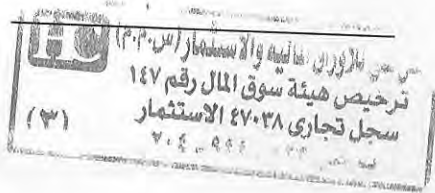 للأوراق المالية والاستثمار (ش.م.م)
ترخيص هيئة سوق المال رقم ١٤٧
سجل تجارى ٤٧٠٣٨ الاستثمار
(٣)